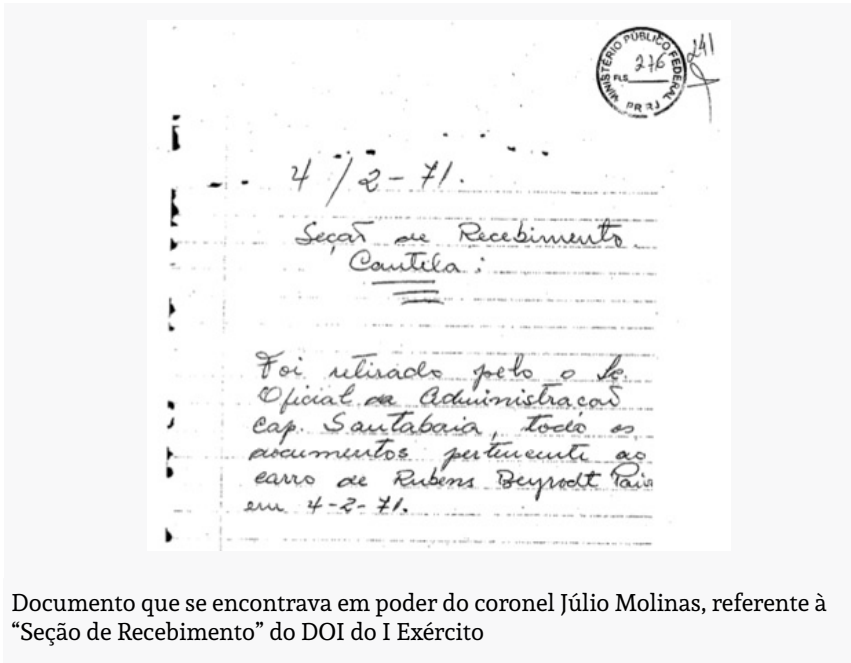 MINISTÉRIO PÚBLICO FEDERAL
FLS 276
PR RJ
241
4/2-71.
Seção de Recebimento
Cautela:
Foi retirado pelo o Sr.
Oficial da Administração
Cap. Santabaia, todo os
documentos pertencente ao
carro de Rubens Beyrodt Paiva
em 4-2-71.
Documento que se encontrava em poder do coronel Júlio Molinas, referente à
“Seção de Recebimento” do DOI do I Exército